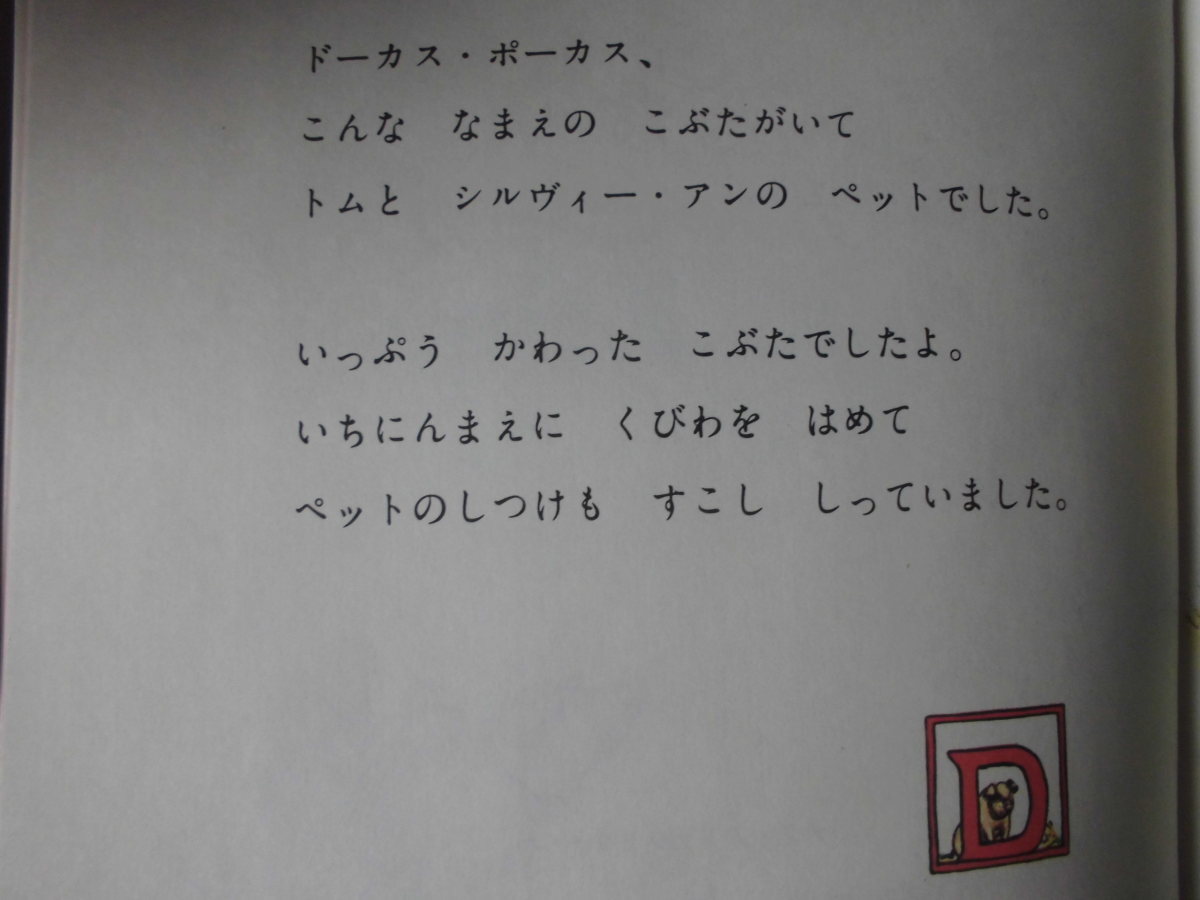 ドーカス・ポーカス、
こんな　なまえの　こぶたがいて
トムと　シルヴィー・アンの　ペットでした。
いっぷう　かわった　こぶたでしたよ。
いちにんまえに　くびわを　はめて
ペットのしつけも　すこし　しっていました。
D